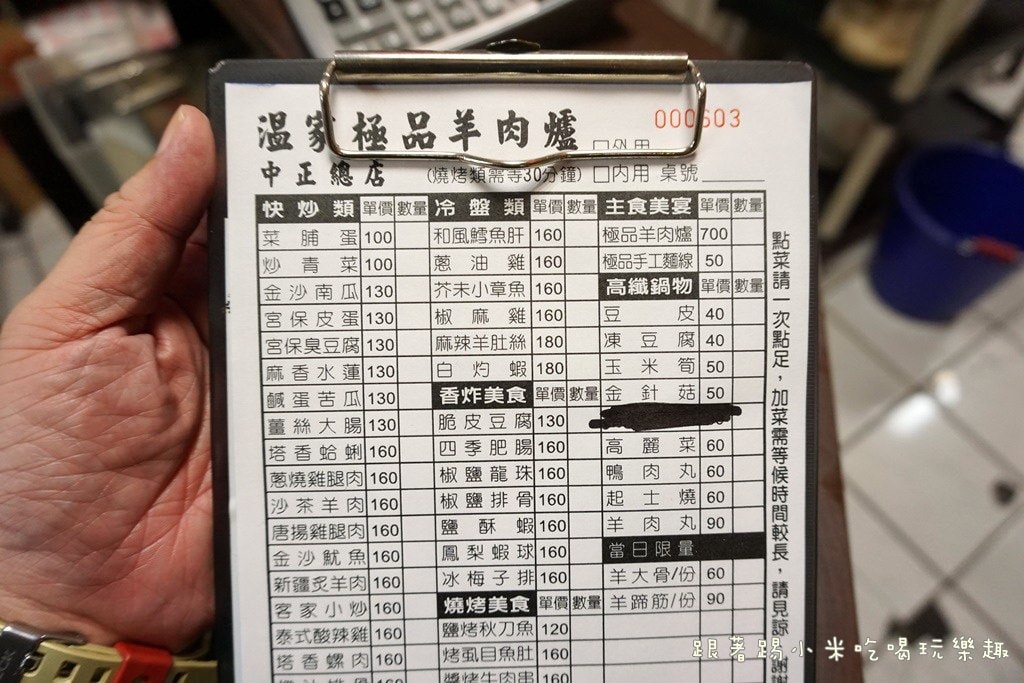 000603
温家極品羊肉爐
□外用
中正總店 (燒烤類需等30分鐘) □內用 桌號
快炒類 單價 數量
菜脯蛋 100
炒青菜 100
金沙南瓜 130
宮保皮蛋 130
宮保臭豆腐 130
麻香水蓮 130
鹹蛋苦瓜 130
薑絲大腸 130
塔香蛤蜊 160
蔥燒雞腿肉 160
沙茶羊肉 160
唐揚雞腿肉 160
金沙魷魚 160
新疆炙羊肉 160
客家小炒 160
泰式酸辣雞 160
塔香螺肉 160
冷盤類 單價 數量
和風鱈魚肝 160
蔥油雞 160
芥末小章魚 160
椒麻雞 160
麻辣羊肚絲 180
白灼蝦 180
香炸美食 單價 數量
脆皮豆腐 130
四季肥腸 160
椒鹽龍珠 160
椒鹽排骨 160
鹽酥蝦 160
鳳梨蝦球 160
冰梅子排 160
燒烤美食 單價 數量
鹽烤秋刀魚 120
烤虱目魚肚 160
醬烤牛肉串 160
主食美宴 單價 數量
極品羊肉爐 700
極品手工麵線 50
高纖鍋物 單價 數量
豆皮 40
凍豆腐 40
玉米筍 50
金針菇 50
高麗菜 60
鴨肉丸 60
起士燒 60
羊肉丸 90
當日限量
羊大骨/份 60
羊蹄筋/份 90
點菜請一次點足，加菜需等候時間較長，請見諒，謝
跟著踢小米吃喝玩樂趣